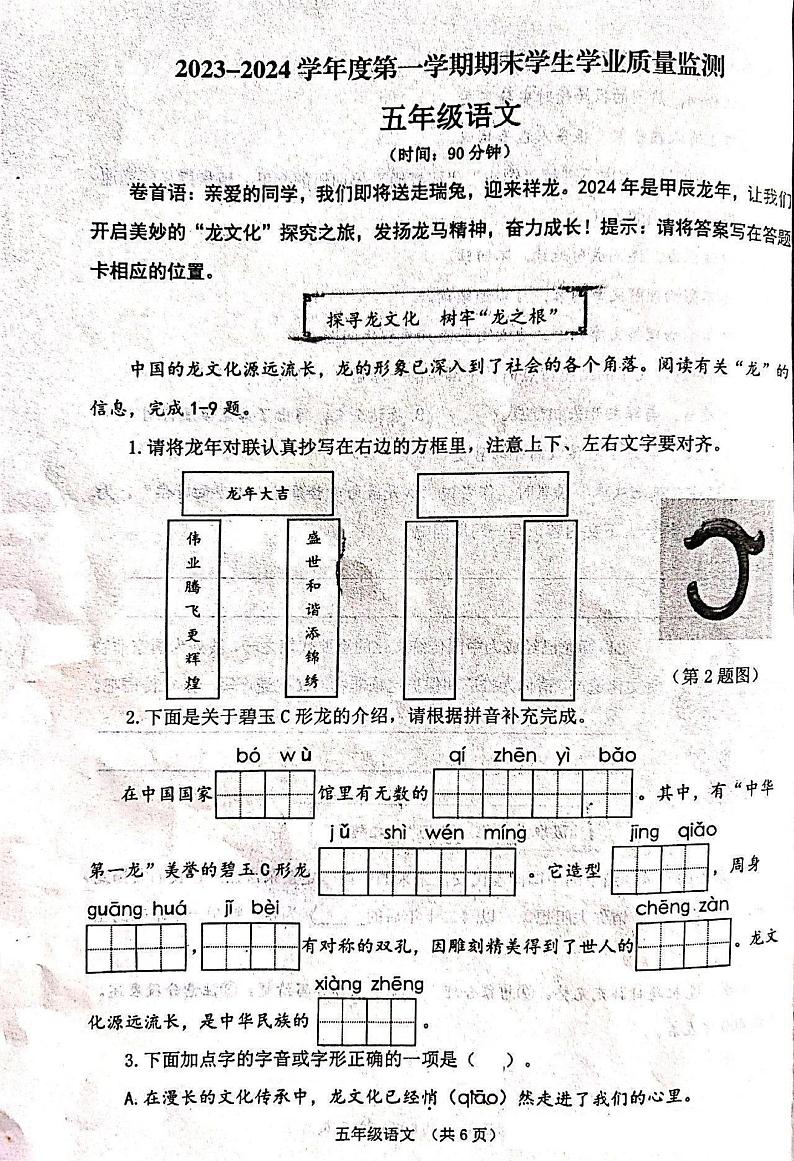 2023-2024学年度第一学期期末学生学业质量监测
五年级语文
（时间：90分钟）
卷首语：亲爱的同学，我们即将送走瑞兔，迎来祥龙。2024年是甲辰龙年，让我们
开启美妙的“龙文化”探究之旅，发扬龙马精神，奋力成长！提示：请将答案写在答题
卡相应的位置。
探寻龙文化 树牢“龙之根”
中国的龙文化源远流长，龙的形象已深入到了社会的各个角落。阅读有关“龙”的
信息，完成1-9题。
1.请将龙年对联认真抄写在右边的方框里，注意上下、左右文字要对齐。
龙年大吉
伟业腾飞更辉煌
盛世和谐添锦绣
（第2题图）
2.下面是关于碧玉C形龙的介绍，请根据拼音补充完成。
bó wù qí zhēn yì bǎo
在中国国家 馆里有无数的 。其中，有“中华
jǔ shì wén míng jīng qiǎo
第一龙”美誉的碧玉C形龙 。它造型 ，周身
guāng huá jǐ bèi chēng zàn
，有对称的双孔，因雕刻精美得到了世人的 。龙文
xiàng zhēng
化源远流长，是中华民族的 。
3.下面加点字的字音或字形正确的一项是（ ）。
A.在漫长的文化传承中，龙文化已经悄（qiāo）然走进了我们的心里。
五年级语文 （共6页）